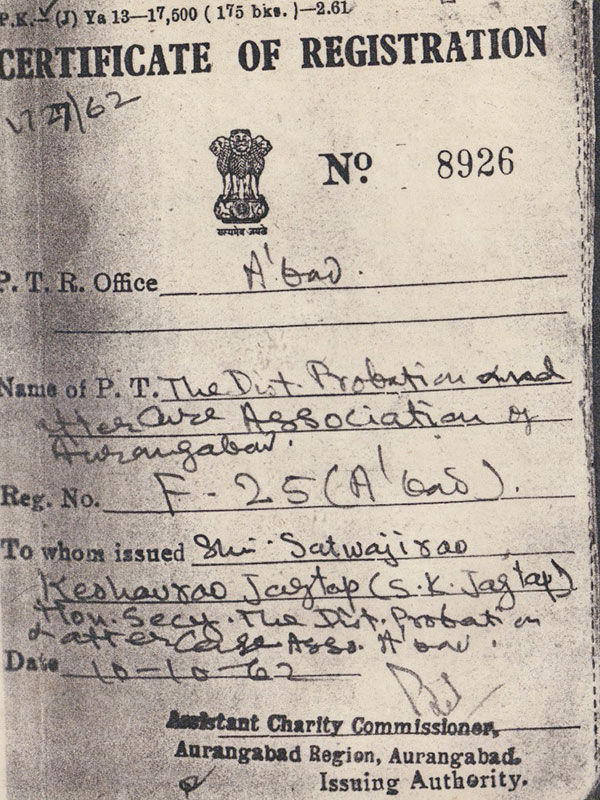 P.K.—(J) Ya 13—17,500 (175 bks.)—2.61
CERTIFICATE OF REGISTRATION
/62
सत्यमेव जयते
No. 8926
P. T. R. Office A'bad.
Name of P. T. The Dist. Probation and
After Care Association of
Aurangabad.
Reg. No. F-25 (A'bad).
To whom issued Shri. Satwajirao
Keshavrao Jagtap (S.K. Jagtap)
Hon. Secy. The Dist. Probation
& after Care Asso. A'bad.
Date 10-10-62
Assistant Charity Commissioner,
Aurangabad Region, Aurangabad.
Issuing Authority.